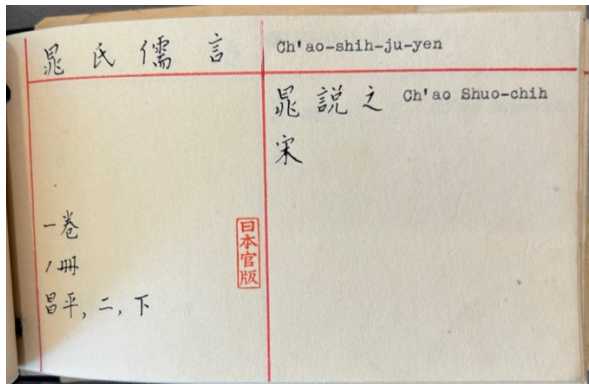 晁氏儒言
Ch'ao-shih-ju-yen
晁説之 Ch'ao Shuo-chih
宋
一卷
1冊
昌平,二,下
日本官版